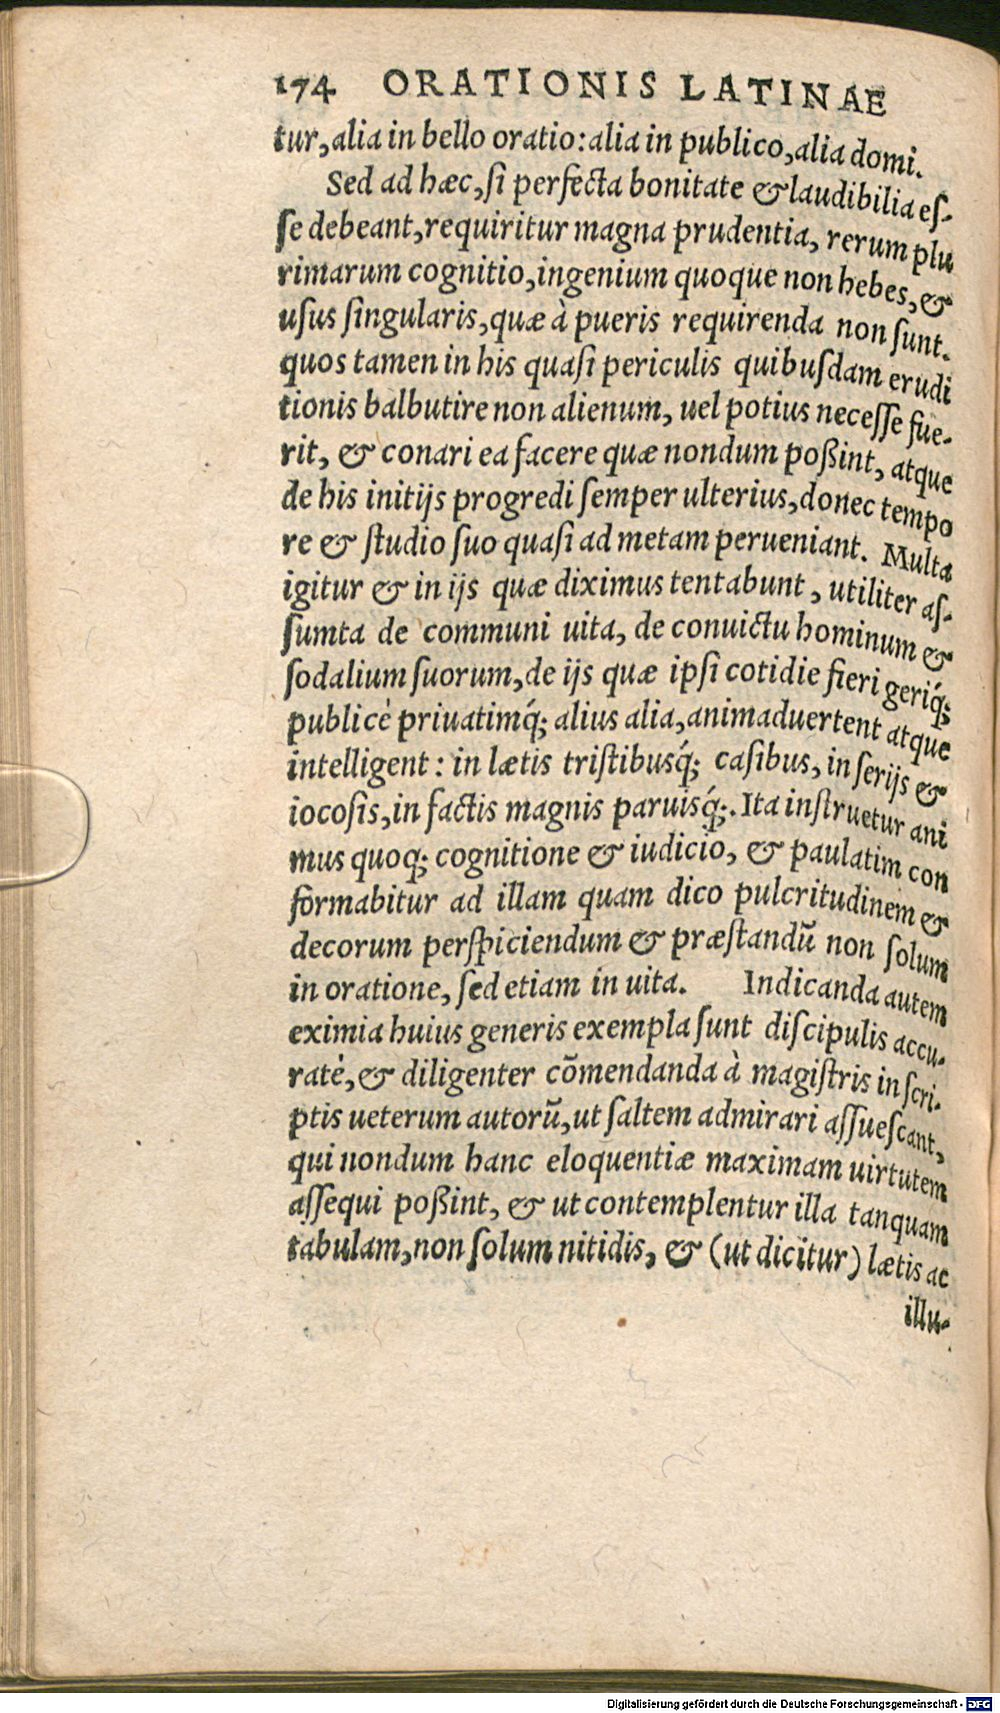 174 ORATIONIS LATINAE
tur, alia in bello oratio: alia in publico, alia domi.
Sed ad hæc, ſi perfecta bonitate & laudibilia eſ-
ſe debeant, requiritur magna prudentia, rerum plu
rimarum cognitio, ingenium quoque non hebes, &
uſus ſingularis, quæ à pueris requirenda non ſunt.
quos tamen in his quaſi periculis quibuſdam erudi
tionis balbutire non alienum, uel potius neceſſe fue-
rit, & conari ea facere quæ nondum poßint, atque
de his initijs progredi ſemper ulterius, donec tempo
re & ſtudio ſuo quaſi ad metam perueniant. Multa
igitur & in ijs quæ diximus tentabunt, utiliter aſ-
ſumta de communi uita, de conuictu hominum &
ſodalium ſuorum, de ijs quæ ipſi cotidie fieri geriq́;
publicè priuatimq́; alius alia, animaduertent atque
intelligent: in lætis triſtibusq́; caſibus, in ſerijs &
iocoſis, in factis magnis paruisq́;. Ita inſtruetur ani
mus quoq; cognitione & iudicio, & paulatim con
formabitur ad illam quam dico pulcritudinem &
decorum perſpiciendum & præſtandũ non ſolum
in oratione, ſed etiam in uita. Indicanda autem
eximia huius generis exempla ſunt diſcipulis accu-
ratè, & diligenter cõmendanda à magiſtris in ſcri-
ptis ueterum autorũ, ut ſaltem admirari aſſueſcant,
qui nondum hanc eloquentiæ maximam uirtutem
aſſequi poßint, & ut contemplentur illa tanquam
tabulam, non ſolum nitidis, & (ut dicitur) lætis ac
illu-
Digitalisierung gefördert durch die Deutsche Forschungsgemeinschaft - DFG